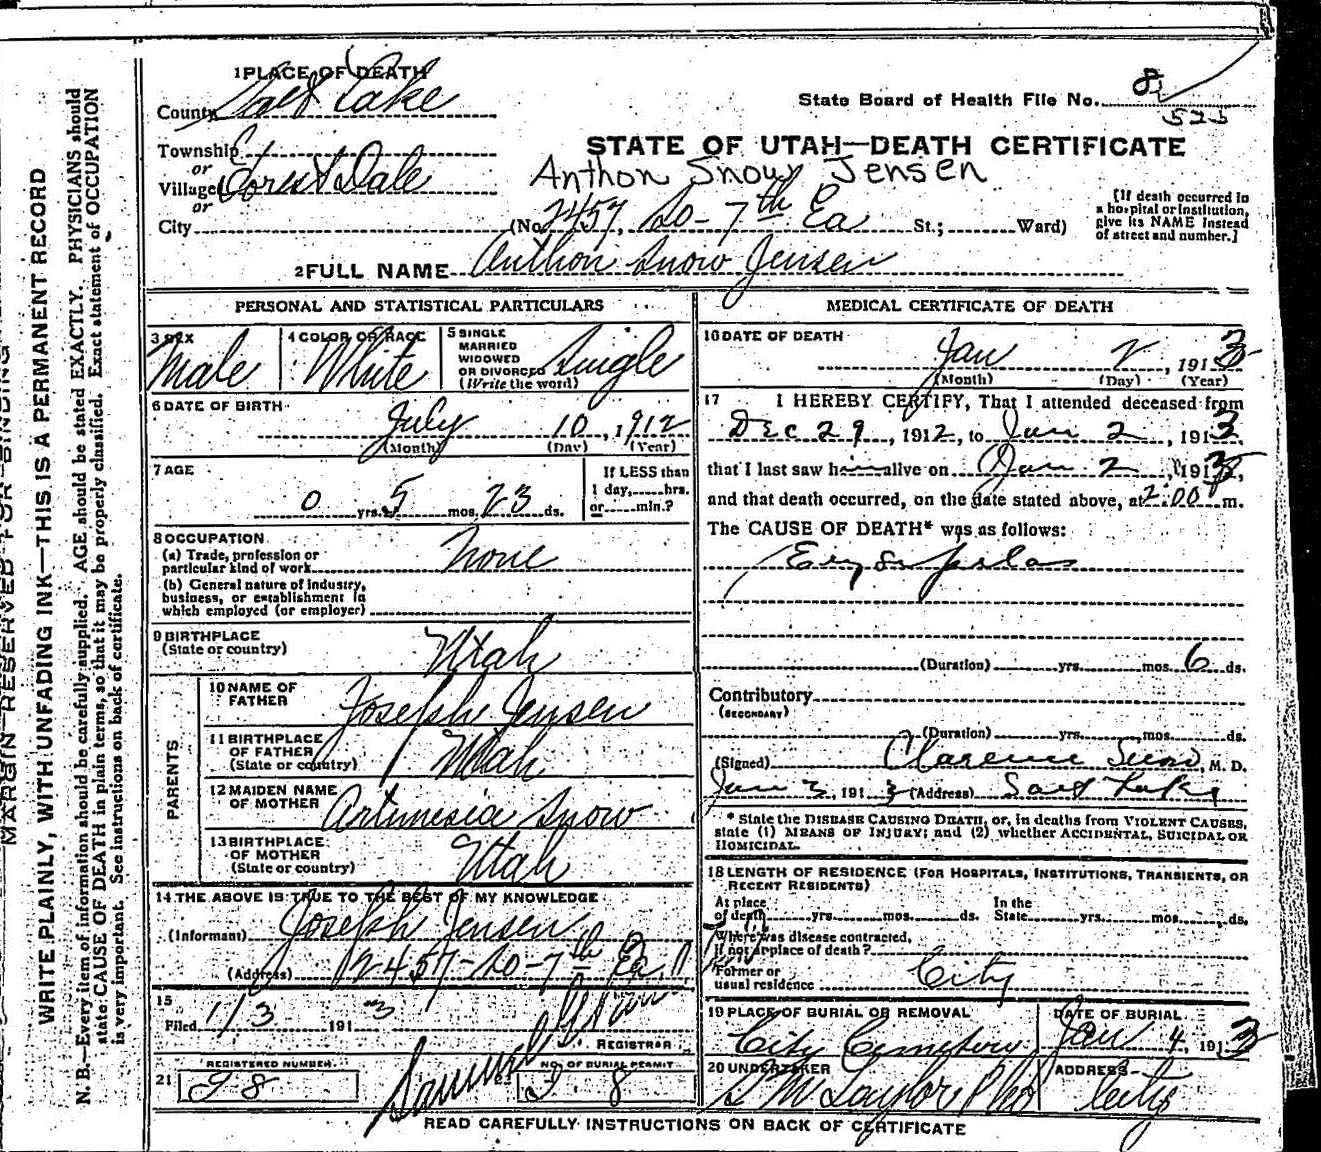 1 PLACE OF DEATH
County Salt Lake
State Board of Health File No. 8
525
Township
or
Village Forest Dale
or
City
STATE OF UTAH—DEATH CERTIFICATE
Anthon Snow Jensen
(No. 2457, So - 7th Ea St.; Ward)
[If death occurred in a hospital or institution, give its NAME instead of street and number.]
2 FULL NAME Anthon Snow Jensen
PERSONAL AND STATISTICAL PARTICULARS
3 SEX
Male
4 COLOR OR RACE
White
5 SINGLE
MARRIED
WIDOWED
OR DIVORCED
(Write the word)
Single
6 DATE OF BIRTH
July 10, 1912
(Month) (Day) (Year)
7 AGE
0 yrs. 5 mos. 23 ds.
If LESS than
1 day, hrs.
or min.?
8 OCCUPATION
(a) Trade, profession or
particular kind of work None
(b) General nature of industry,
business, or establishment in
which employed (or employer)
9 BIRTHPLACE
(State or country)
Utah
PARENTS
10 NAME OF
FATHER
Joseph Jensen
11 BIRTHPLACE
OF FATHER
(State or country)
Utah
12 MAIDEN NAME
OF MOTHER
Artimesia Snow
13 BIRTHPLACE
OF MOTHER
(State or country)
Utah
14 THE ABOVE IS TRUE TO THE BEST OF MY KNOWLEDGE
(Informant) Joseph Jensen
(Address) 2457-So-7th Ea.
15
Filed 1/3 1913
REGISTRAR
REGISTERED NUMBER
21
NO. OF BURIAL PERMIT
8
MEDICAL CERTIFICATE OF DEATH
16 DATE OF DEATH
Jan 2, 1913
(Month) (Day) (Year)
17 I HEREBY CERTIFY, That I attended deceased from
Dec 29, 1912, to Jan 2, 1913,
that I last saw him alive on Jan 2, 1913,
and that death occurred, on the date stated above, at 2:00 m.
The CAUSE OF DEATH* was as follows:
Erysipelas
(Duration) yrs. mos. 6 ds.
Contributory
(SECONDARY)
(Duration) yrs. mos. ds.
(Signed) Clarence Snow, M. D.
Jan 3, 1913 (Address) Salt Lake
* State the DISEASE CAUSING DEATH, or, in deaths from VIOLENT CAUSES,
state (1) MEANS OF INJURY; and (2) whether ACCIDENTAL, SUICIDAL OR
HOMICIDAL.
18 LENGTH OF RESIDENCE (FOR HOSPITALS, INSTITUTIONS, TRANSIENTS, OR
RECENT RESIDENTS)
At place
of death yrs. mos. ds.
In the
State yrs. mos. ds.
Where was disease contracted,
if not at place of death?
Former or
usual residence City
19 PLACE OF BURIAL OR REMOVAL
City Cemetery
DATE OF BURIAL
Jan 4, 1913
20 UNDERTAKER
S M Taylor
ADDRESS
City
READ CAREFULLY INSTRUCTIONS ON BACK OF CERTIFICATE
MARGIN RESERVED FOR BINDING
WRITE PLAINLY, WITH UNFADING INK—THIS IS A PERMANENT RECORD
N. B.—Every item of information should be carefully supplied. AGE should be stated EXACTLY. PHYSICIANS should
state CAUSE OF DEATH in plain terms, so that it may be properly classified. Exact statement of OCCUPATION
is very important. See instructions on back of certificate.